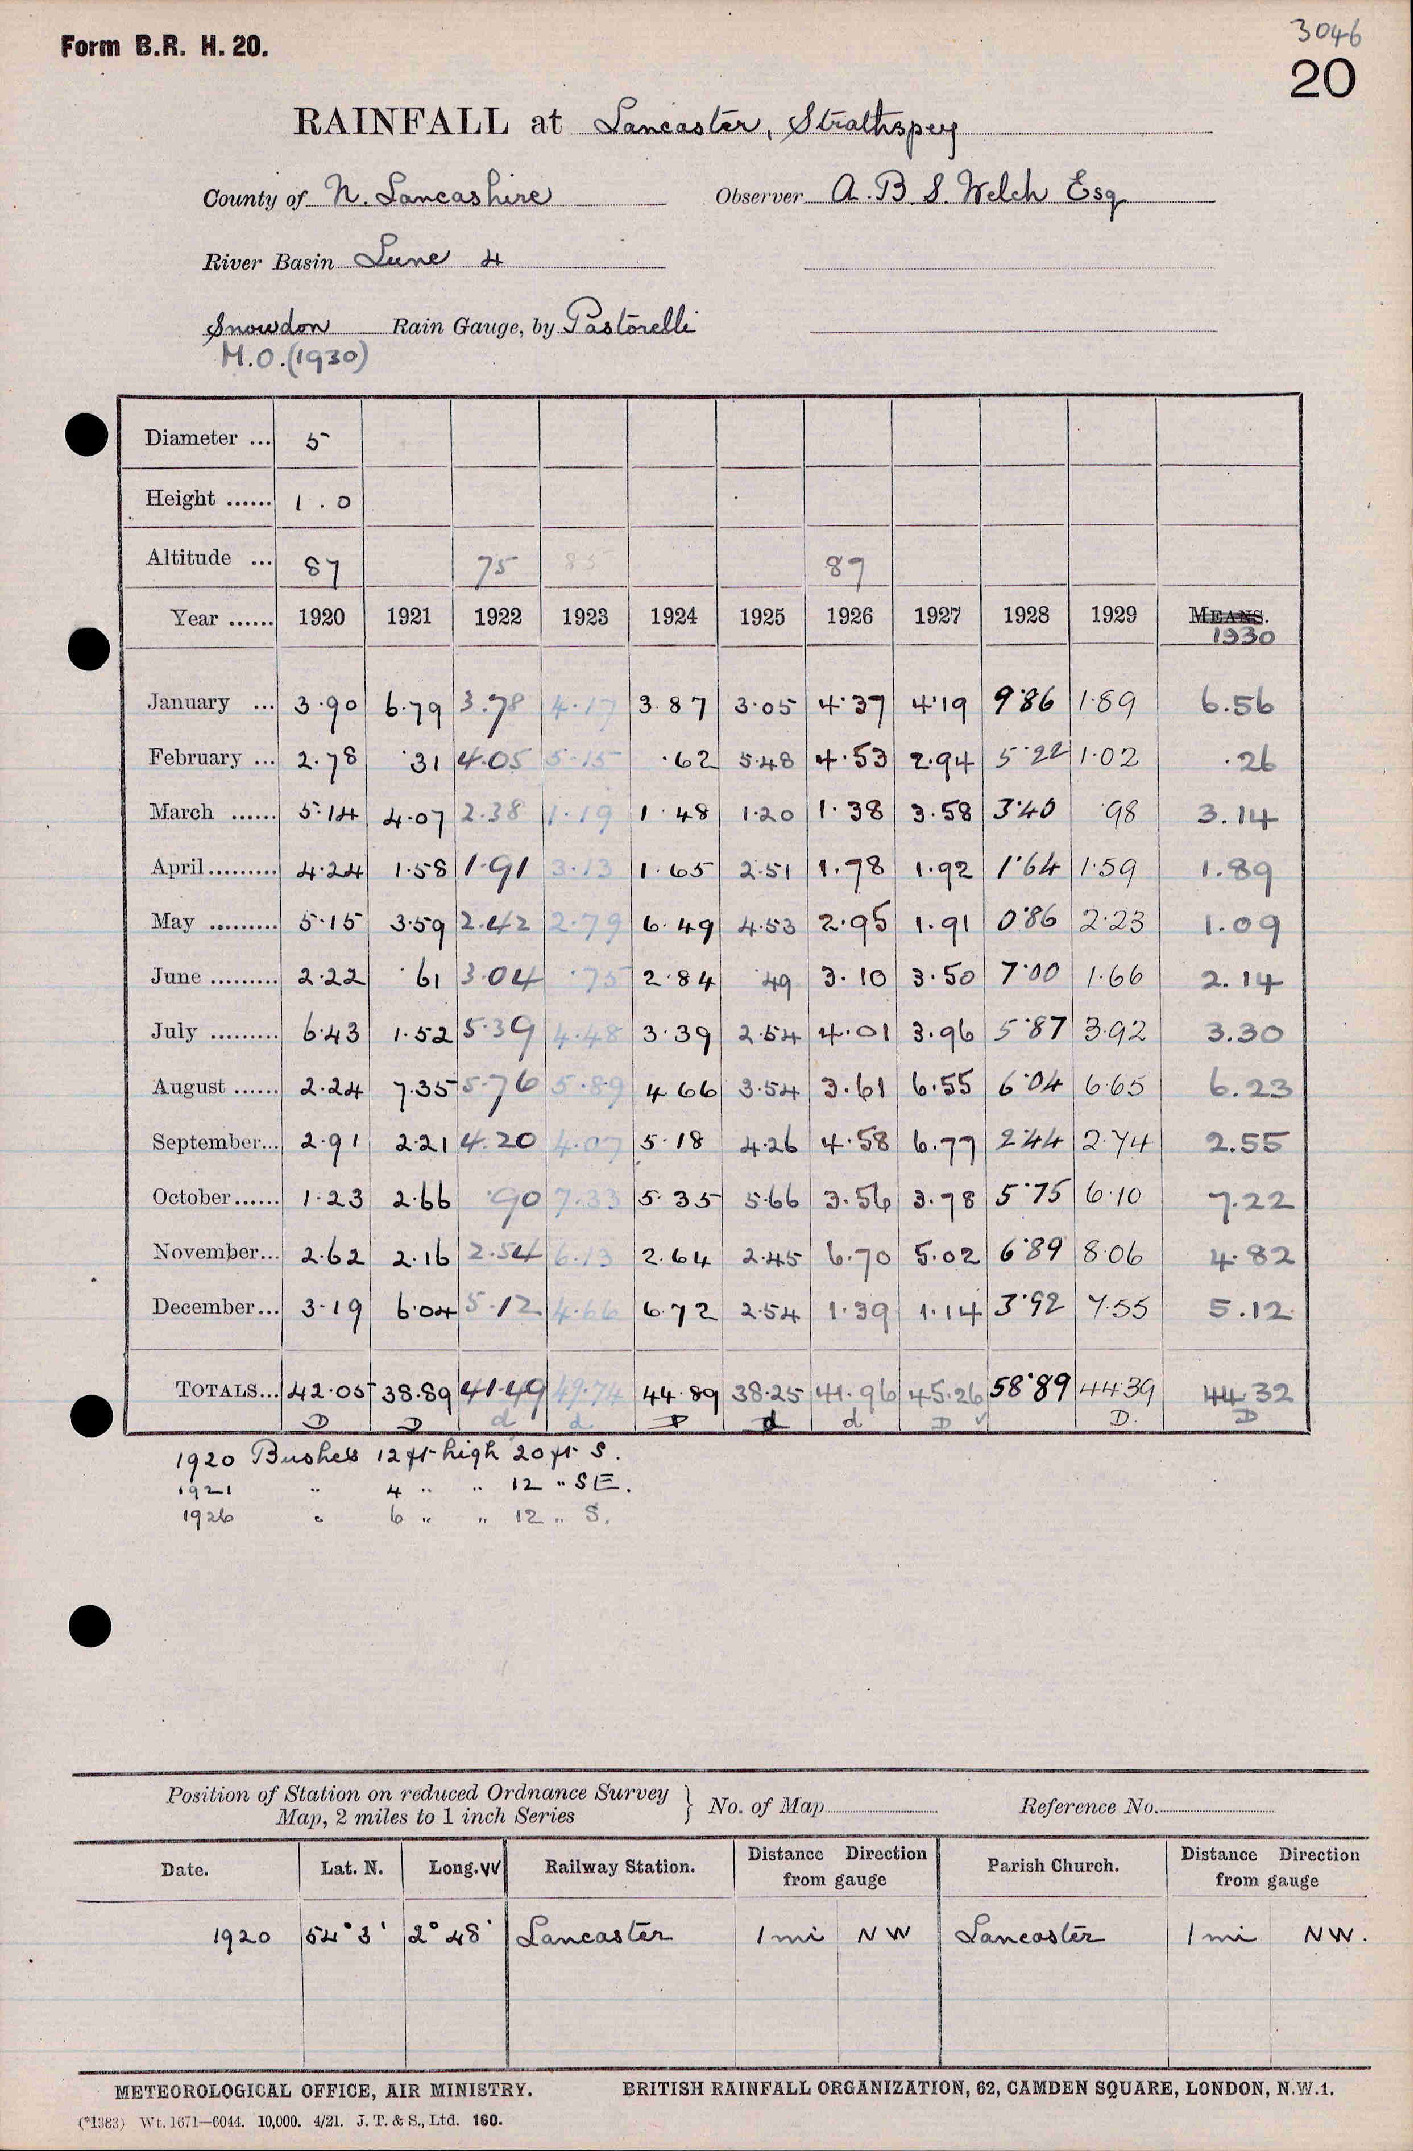 3046
Form B.R. H. 20.
20
RAINFALL at Lancaster, Strathspey
County of N. Lancashire Observer A. B. S. Welch Esq
River Basin Lune 4
Snowdon Rain Gauge, by Pastorelli
M.O. (1930)
Diameter ... 5
Height ...... 1 . 0
Altitude ... 87 75 85 87
Year ...... 1920 1921 1922 1923 1924 1925 1926 1927 1928 1929 MEANS.
1930
January ... 3.90 6.79 3.78 4.17 3.87 3.05 4.37 4.19 9.86 1.89 6.56
February ... 2.78 .31 4.05 5.15 .62 5.48 4.53 2.94 5.22 1.02 .26
March ...... 5.14 4.07 2.38 1.19 1.48 1.20 1.38 3.58 3.40 .98 3.14
April......... 4.24 1.58 1.91 3.13 1.65 2.51 1.78 1.92 1.64 1.59 1.89
May ......... 5.15 3.59 2.42 2.79 6.49 4.53 2.95 1.91 0.86 2.23 1.09
June ......... 2.22 .61 3.04 .75 2.84 .49 3.10 3.50 7.00 1.66 2.14
July ......... 6.43 1.52 5.39 4.48 3.39 2.54 4.01 3.96 5.87 3.92 3.30
August ...... 2.24 7.35 5.76 5.89 4.66 3.54 3.61 6.55 6.04 6.65 6.23
September... 2.91 2.21 4.20 4.07 5.18 4.26 4.58 6.77 2.44 2.74 2.55
October...... 1.23 2.66 .90 7.33 5.35 5.66 3.56 3.78 5.75 6.10 7.22
November... 2.62 2.16 2.54 6.13 2.64 2.45 6.70 5.02 6.89 8.06 4.82
December... 3.19 6.04 5.12 4.66 6.72 2.54 1.39 1.14 3.92 7.55 5.12
TOTALS... 42.05 38.89 41.49 49.74 44.89 38.25 41.96 45.26 58.89 44.39 44.32
D D d d D d d D ✓ D. D
1920 Bushes 12 ft high 20 ft S.
1921 " 4 " " 12 " SE.
1926 " 6 " " 12 " S.
Position of Station on reduced Ordnance Survey
Map, 2 miles to 1 inch Series } No. of Map Reference No.
Date. Lat. N. Long. W Railway Station. Distance from gauge Direction Parish Church. Distance from gauge Direction
1920 54° 3' 2° 48' Lancaster 1 mi NW Lancaster 1 mi NW.
METEOROLOGICAL OFFICE, AIR MINISTRY. BRITISH RAINFALL ORGANIZATION, 62, CAMDEN SQUARE, LONDON, N.W.1.
(*1383) Wt. 1671—6044. 10,000. 4/21. J. T. & S., Ltd. 160.